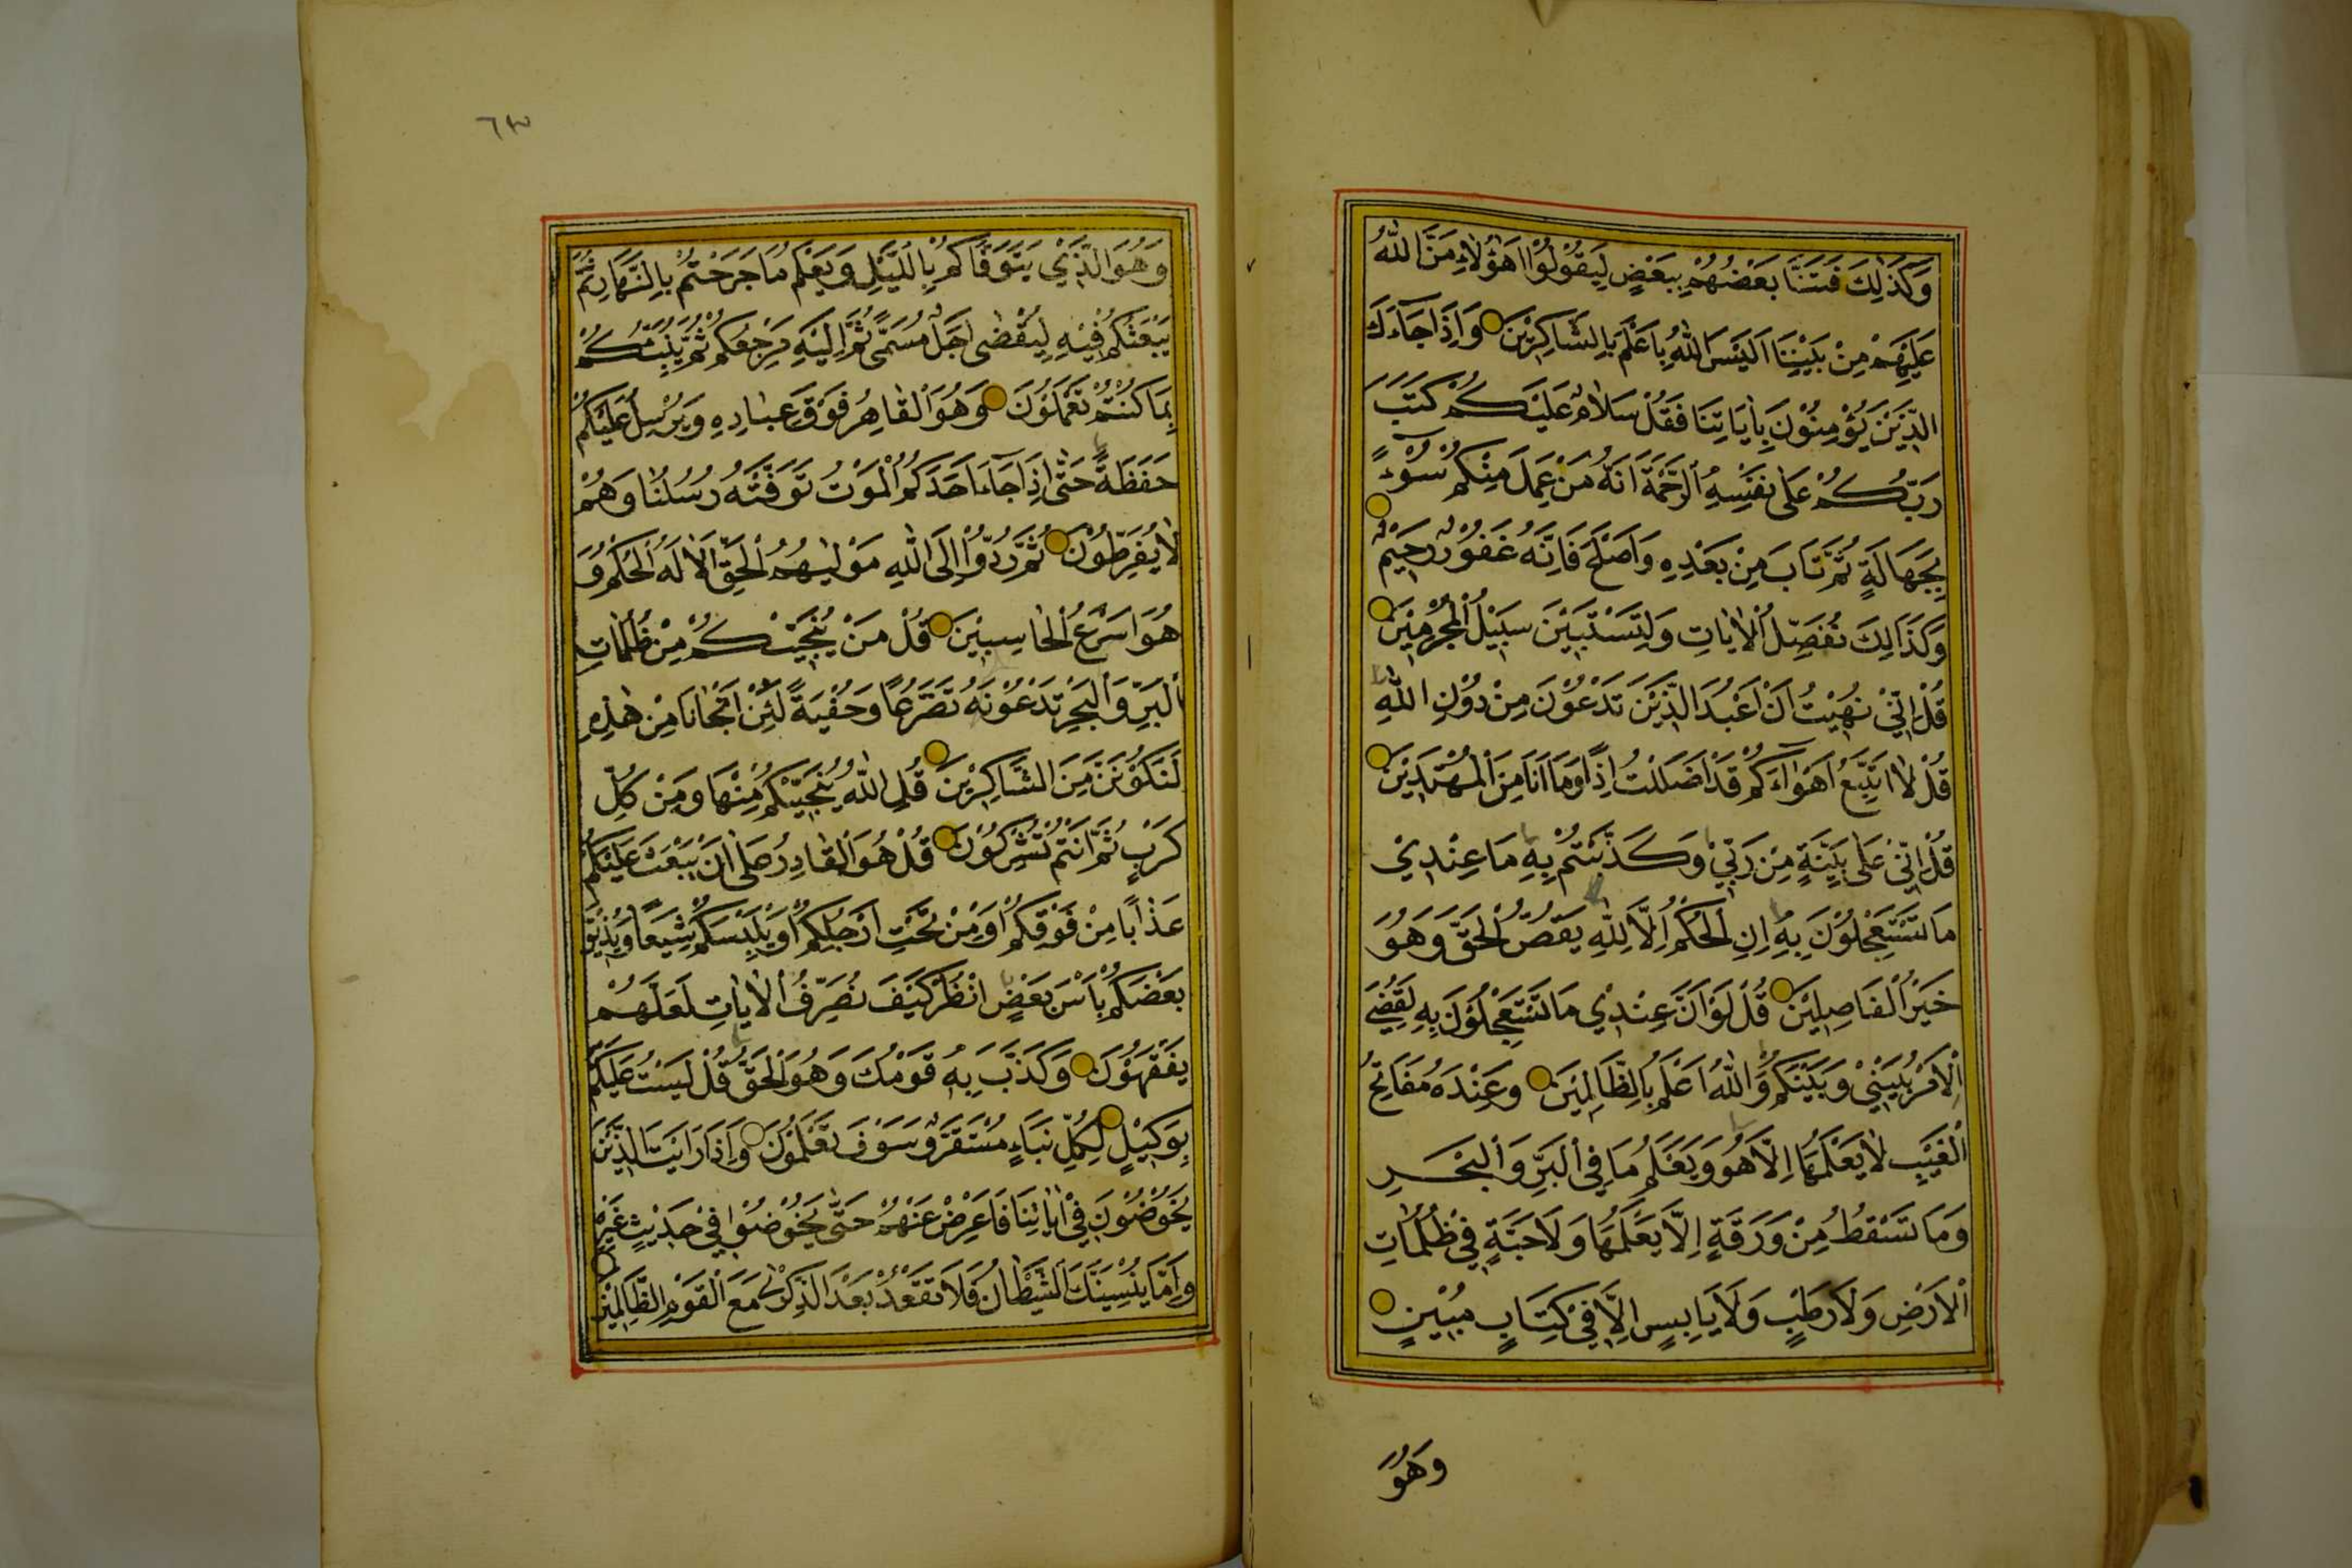 وَكَذٰلِكَ فَتَنَّا بَعْضُهُمْ بِبَعْضٍ لِيَقُوْلُوْا اَهٰؤُلَاءِ مَنَّ اللّٰهُ
عَلَيْهِمْ مِنْ بَيْنِنَا اَلَيْسَ اللّٰهُ بِاَعْلَمَ بِالشَّاكِرِيْنَ وَاِذَا جَاءَكَ
الَّذِيْنَ يُؤْمِنُوْنَ بِاٰيَاتِنَا فَقُلْ سَلَامٌ عَلَيْكُمْ كَتَبَ
رَبُّكُمْ عَلٰى نَفْسِهِ الرَّحْمَةَ اَنَّهُ مَنْ عَمِلَ مِنْكُمْ سُوْءً
بِجَهَالَةٍ ثُمَّ تَابَ مِنْ بَعْدِهِ وَاَصْلَحَ فَاِنَّهُ غَفُوْرٌ رَحِيْمٌ
وَكَذَالِكَ نُفَصِّلُ الْاٰيَاتِ وَلِتَسْتَبِيْنَ سَبِيْلُ الْمُجْرِمِيْنَ
قُلْ اِنِّيْ نُهِيْتُ اَنْ اَعْبُدَ الَّذِيْنَ تَدْعُوْنَ مِنْ دُوْنِ اللّٰهِ
قُلْ لَا اَتَّبِعُ اَهْوَاءَكُمْ قَدْ ضَلَلْتُ اِذًا وَمَا اَنَا مِنَ الْمُهْتَدِيْنَ
قُلْ اِنِّيْ عَلٰى بَيِّنَةٍ مِنْ رَبِّيْ وَكَذَّبْتُمْ بِهِ مَا عِنْدِيْ
مَا تَسْتَعْجِلُوْنَ بِهِ اِنِ الْحُكْمُ اِلَّا لِلّٰهِ يَقُصُّ الْحَقَّ وَهُوَ
خَيْرُ الْفَاصِلِيْنَ قُلْ لَوْ اَنَّ عِنْدِيْ مَا تَسْتَعْجِلُوْنَ بِهِ لَقُضِيَ
الْاَمْرُ بَيْنِيْ وَبَيْنَكُمْ وَاللّٰهُ اَعْلَمُ بِالظَّالِمِيْنَ وَعِنْدَهُ مَفَاتِحُ
الْغَيْبِ لَا يَعْلَمُهَا اِلَّا هُوَ وَيَعْلَمُ مَا فِي الْبَرِّ وَالْبَحْرِ
وَمَا تَسْقُطُ مِنْ وَرَقَةٍ اِلَّا يَعْلَمُهَا وَلَا حَبَّةٍ فِيْ ظُلُمَاتِ
الْاَرْضِ وَلَا رَطْبٍ وَلَا يَابِسٍ اِلَّا فِيْ كِتَابٍ مُبِيْنٍ
وَهُوَ
٦٣
وَهُوَ الَّذِيْ يَتَوَفَّاكُمْ بِاللَّيْلِ وَيَعْلَمُ مَا جَرَحْتُمْ بِالنَّهَارِ ثُمَّ
يَبْعَثُكُمْ فِيْهِ لِيُقْضٰى اَجَلٌ مُسَمًّى ثُمَّ اِلَيْهِ مَرْجِعُكُمْ ثُمَّ يُنَبِّئُكُمْ
بِمَا كُنْتُمْ تَعْمَلُوْنَ وَهُوَ الْقَاهِرُ فَوْقَ عِبَادِهِ وَيُرْسِلُ عَلَيْكُمْ
حَفَظَةً حَتّٰى اِذَا جَاءَ اَحَدَكُمُ الْمَوْتُ تَوَفَّتْهُ رُسُلُنَا وَهُمْ
لَا يُفَرِّطُوْنَ ثُمَّ رُدُّوْا اِلَى اللّٰهِ مَوْلٰيهُمُ الْحَقِّ اَلَا لَهُ الْحُكْمُ وَ
هُوَ اَسْرَعُ الْحَاسِبِيْنَ قُلْ مَنْ يُنَجِّيْكُمْ مِنْ ظُلُمَاتِ
الْبَرِّ وَالْبَحْرِ تَدْعُوْنَهُ تَضَرُّعًا وَخُفْيَةً لَئِنْ اَنْجَانَا مِنْ هٰذِهِ
لَنَكُوْنَنَّ مِنَ الشَّاكِرِيْنَ قُلِ اللّٰهُ يُنَجِّيْكُمْ مِنْهَا وَمِنْ كُلِّ
كَرْبٍ ثُمَّ اَنْتُمْ تُشْرِكُوْنَ قُلْ هُوَ الْقَادِرُ عَلٰى اَنْ يَبْعَثَ عَلَيْكُمْ
عَذَابًا مِنْ فَوْقِكُمْ اَوْ مِنْ تَحْتِ اَرْجُلِكُمْ اَوْ يَلْبِسَكُمْ شِيَعًا وَيُذِيْقَ
بَعْضَكُمْ بَأْسَ بَعْضٍ اُنْظُرْ كَيْفَ نُصَرِّفُ الْاٰيَاتِ لَعَلَّهُمْ
يَفْقَهُوْنَ وَكَذَّبَ بِهِ قَوْمُكَ وَهُوَ الْحَقُّ قُلْ لَسْتُ عَلَيْكُمْ
بِوَكِيْلٍ لِكُلِّ نَبَاءٍ مُسْتَقَرٌّ وَسَوْفَ تَعْلَمُوْنَ وَاِذَا رَاَيْتَ الَّذِيْنَ
يَخُوْضُوْنَ فِيْ اٰيَاتِنَا فَاَعْرِضْ عَنْهُمْ حَتّٰى يَخُوْضُوْا فِيْ حَدِيْثٍ غَيْرِهِ
وَاِمَّا يُنْسِيَنَّكَ الشَّيْطَانُ فَلَا تَقْعُدْ بَعْدَ الذِّكْرٰى مَعَ الْقَوْمِ الظَّالِمِيْنَ